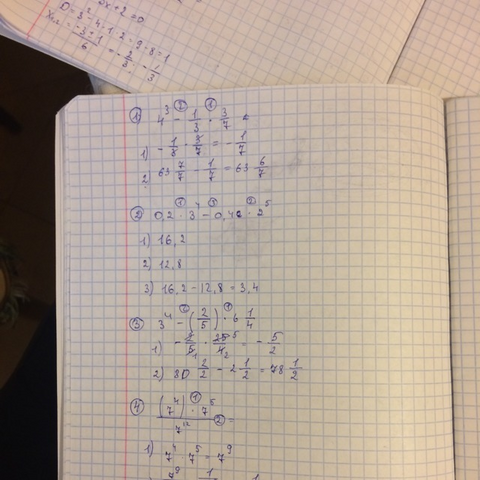 D = 3² - 4 · 1 · 2 = 9 - 8 = 1
① 4³ - 1/3 · 3/7
1) - 1/3 · 3/7 = - 1/7
2) 63 7/7 - 1/7 = 63 6/7
② 0,2 · 3⁴ - 0,4 · 2⁵
1) 16,2
2) 12,8
3) 16,2 - 12,8 = 3,4
③ 3⁴ - (2/5) · 6 1/4
1) - 2/5 · 25/4 = - 5/2
2) 80 2/2 - 2 1/2 = 78 1/2
④ (7⁴) · 7⁵ / 7¹² =
1) 7⁴ · 7⁵ = 7⁹